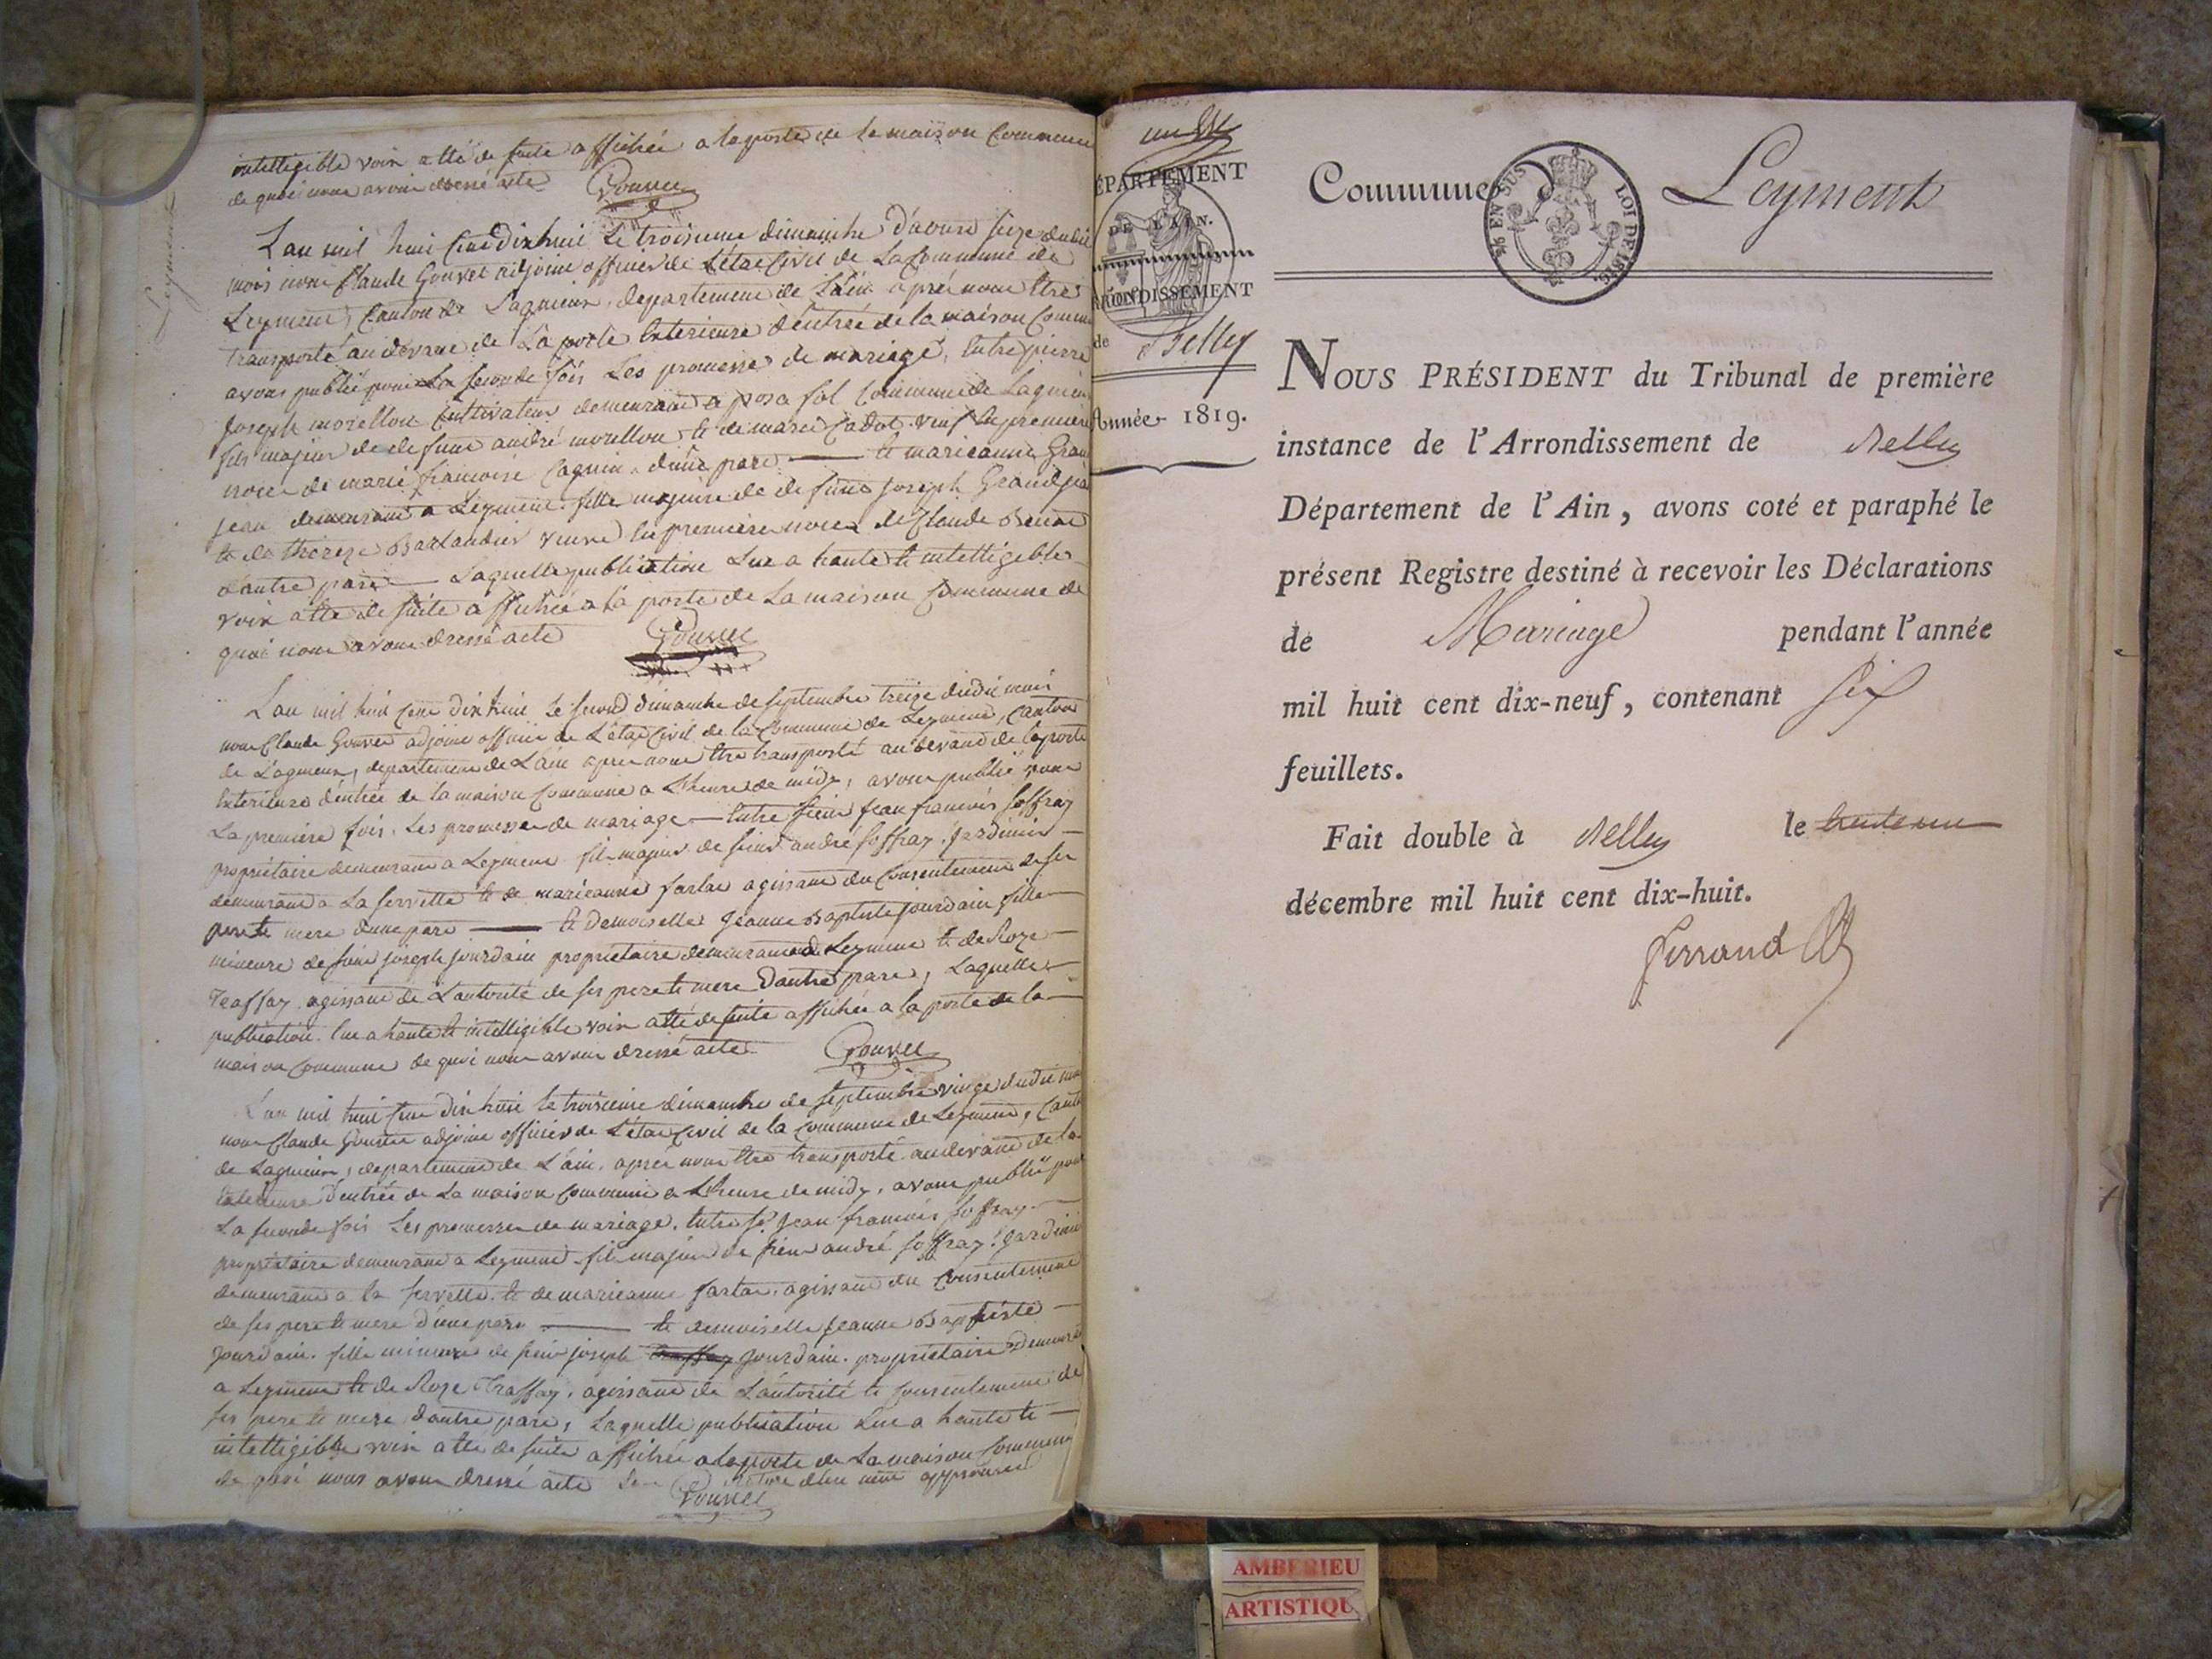 intelligible voix atté de suite affichée a la porte de la maison Commune
de quoi nous avons dressé acte Gouvet
L'an mil huit cent dix huit le troisieme dimanche d'aoust seize dudit
mois nous Claude Gouvet adjoint officier de l'état Civil de La Commune de
Leyment, Canton de Lagnieux, departement de L'ain après nous être
transporté au devant de La porte Exterieure d'entrée de la maison Comm
avons publié pour La seconde fois Les promesses de mariage, Entre pierre
Joseph morellon Cultivateur demeurant a posafol Commune de Lagnieu
fils majeur de defunt andré morellon et de marie Cadot veuf En premiere
noces de marie francoise Cagnin d'une part — Et marieanne Grand
jean demeurant a Leyment fille majeure de defunt Joseph Grandjea
et de thereze Barlandier veuve En premiere noces de Claude
d'autre part — Laquelle publication Lue a haute et intelligible
voix atté de suite affichée a la porte de La maison Commune de
quoi nous avons dressé acte Gouvet
L'an mil huit cent dix huit le second dimanche de septembre treize dudit mois
nous Claude Gouvet adjoint officier de L'état Civil de la Commune de Leyment, Canton
de Lagnieux, departement de L'ain après nous être transporté au devant de la porte
Exterieure d'entrée de la maison Commune a L'heure de midy, avons publié pour
La premiere fois, Les promesses de mariage — Entre sieur Jean francois soffray
propriétaire demeurant a Leyment fils majeur de sieur andré soffray, Jardinier —
demeurant a La servette et de marieanne farlat agissant du Consentement de ses
pere et mere d'une part — Et demoiselle Jeanne Baptiste jourdain fille —
mineure de sieur joseph jourdain propriétaire demeurant a Leyment et de Roze —
Traffay agissant de L'autorité de ses pere et mere d'autre part, Laquelle —
publication lue a haute et intelligible voix atté de suite affichée a la porte de la —
maison Commune de quoi nous avons dressé acte Gouvet
L'an mil huit cent dix huit le troisieme dimanche de septembre vingt dudit mois
nous Claude Gouvet adjoint officier de L'état Civil de la Commune de Leyment, Cant
de Lagnieux, departement de L'ain, après nous être transporté au devant de la
Exterieure d'entrée de La maison Commune a L'heure de midy, avons publié pour
La seconde fois Les promesses de mariage, Entre Sr. Jean francois soffray —
propriétaire demeurant a Leyment fils majeur de sieur andré soffray, Jardinier
demeurant a la servette, et de marieanne farlat, agissant du Consentement
de ses pere et mere d'une part — Et demoiselle Jeanne Baptiste —
Jourdain, fille mineure de sieur joseph Jourdain, propriétaire Demeurant
a Leyment et de Roze Traffay, agissant de L'autorité et Consentement de
ses pere et mere d'autre part, Laquelle publication Lue a haute et —
intelligible voix atté de suite affichée a la porte de La maison Commune
de quoi nous avons dressé acte approuvé
Gouvet
Leyment
DÉPARTEMENT
DE L'AIN.
ARRONDISSEMENT
de Belley
Année 1819.
Commune Leyment
¼ EN SUS LOI DE 1816.
NOUS PRÉSIDENT du Tribunal de première
instance de l'Arrondissement de Belley
Département de l'Ain, avons coté et paraphé le
présent Registre destiné à recevoir les Déclarations
de Mariage pendant l'année
mil huit cent dix-neuf, contenant six
feuillets.
Fait double à Belley le trente un
décembre mil huit cent dix-huit.
Ferrand
AMBERIEU
ARTISTIQU